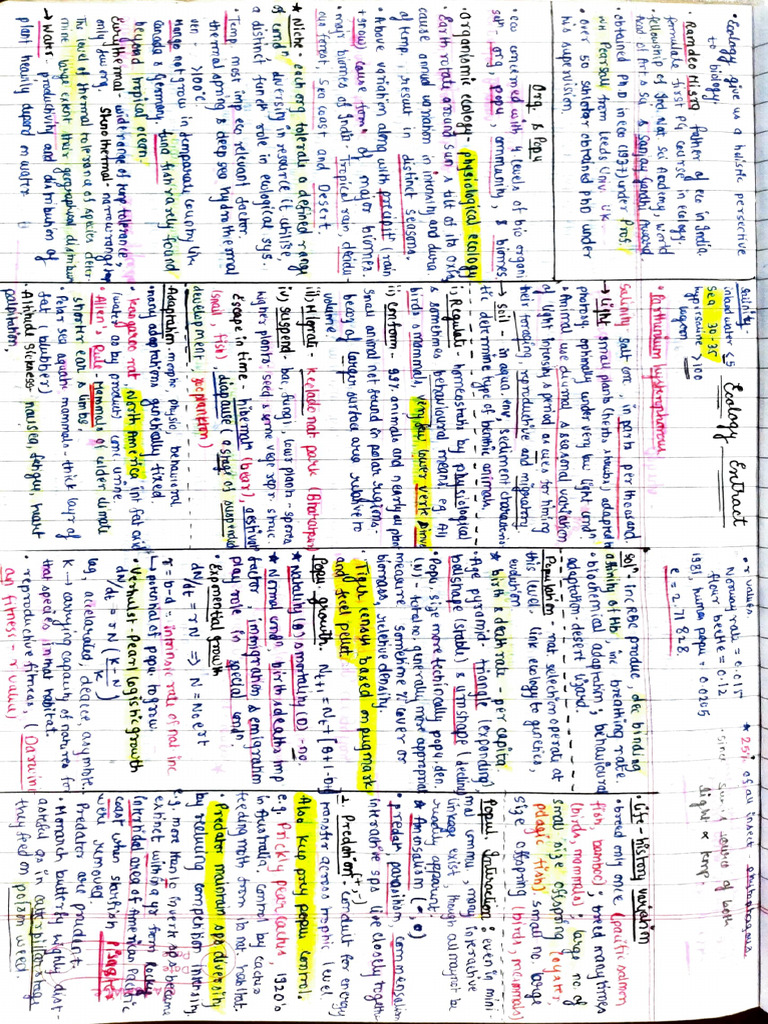 Ecology Extract
• Ecology give us a holistic perspective
to biology.
• Ramdeo Misra father of eco in India.
formulate first PG course in ecology.
fellowship of Ind Nat Sci Academy, world
acad of Art & Sci & Sanjay Gandhi Award
• obtained PhD in eco (1937) under Prof.
WH Pearsall from Leeds Univ. UK
• over 50 scholar obtained PhD under
his supervision.
Org & Popu
• eco concerned with 4 levels of bio organi
sat - org, popu, community, & biomes
• Organismic ecology - physiological ecology
• Earth rotate around sun & tilt of its axis
cause annual variation in intensity and dura.
of temp., result in distinct seasons.
• Above variation along with precipitⁿ (rain
+ snow) cause formⁿ of major biomes.
• major biomes of India - Tropical rain, decidu-
ous forest, Sea coast and Desert.
★ Niche - each org tolerate a defined range
of condⁿ, diversity in resource it utilise,
a distinct functⁿ role in ecological sys.
Temp. most imp eco relevant factor.
thermal spring & deep sea hydrothermal
ven - >100°C
Mango not grow in temparate country like
Canada & Germany, tuna fish rarely found
beyond tropical ocean.
Eurythermal - wide range of temp tolerance,
only few org. Stenothermal - narrow range temp
The level of thermal tolerance of species deter-
mine large extent their geographical distribut
→ Water - productivity and distribution of
plant heavily depend on water
salinity.
inland water <5
sea 30-35
hypersaline >100
lagoon
• Parthenium hysterophorus
salinity - salt conc, in parts per thousand
→ Light small plants (herbs, shrubs) adapted to
photosyⁿ optimally under very low light condⁿ
• Animal use diurnal & seasonal variation
of light intensity & period as cues for timing
their foraging, reproductive and migratory
→ soil - in aqua env, sediment characteris
tic determine type of benthic animals.
i) Regulate - homeostatis by physiological
& sometimes behavioural means, eg All
birds & mammals, very few lower verte & inve
ii) Conform - 99% animals and nearly all plan
small animal not found in polar regions -
becoz of larger surface area relative to
volume.
iii) Migrate - Keolado nat park (Bharatpur)
iv) suspend - bac, fungi, lower plants - spores,
higher plants - seed & some veg. repr. struc.
Escape in time - hibernatⁿ (bear), aestivatⁿ
(snail, fish), diapause (a stage of suspended
development, zooplankton)
Adaptation - morpho, physio, behavioural
many adaptations genetically fixed
• kangaroo rat, North America (int fat oxid
(water as by product) conc urine
• Allen's Rule - Mammals of colder climate
shorter ear & limbs.
• Polar sea aquatic mammals - thick layer of
fat (blubber)
• Altitude sickness - nausea, fatigue, heart
palpitation,
• r values
Norway rat = 0.015
flour beetle = 0.12
1981, human popu = 0.0205
e = 2.71828
solⁿ - inc RBC produce, dec binding
affinity of Hb, inc breathing rate.
• biochemical adaptation; behavioural
adaptation - desert lizard.
Population - nat selection operate at
this level, link ecology to genetics,
evolution
★ birth & death rate - per capita.
• Age pyramid - triangle (expanding)
bellshape (stable) & urn shape (declin)
• Popu. size more techinically popu. den.
(N) - total no, generally more appropriat
measure. sometime % cover or
biomass, relative density.
Tiger census based on pugmark
and fecal pellet.
Popu. growth. Nt+1 = Nt + [(B+I)-(D+E)]
★ Natality (B) & mortality (D) - no.
★ Normal condⁿ birth & deaths imp
factor, immigration & emigration
play role in special condⁿ.
• Exponential growth
dN/dt = rN ⇒ N = N₀eʳᵗ
r = b-d = intrinsic rate of nat inc
↳ potential of popu to grow.
• Verhulst-Pearl logistic growth
dN/dt = rN (K-N / K)
lag, acclarated, deacce, asymptote.
K → carrying capacity of nature for
that species in that habitat.
• reproductive fitness, (Darwini
an fitness - r value)
★ 25% of all insect - phytophagous
• since sun is source of both
light & temp.
• Life-history variation
• breed only once (pacific salmon
fish, bamboo); breed many times
(birds, mammals); large no. of
small size offspring (oyster,
pelagic fish) small no. large
size offspring (birds, mammals)
Popul. Interaction : even in mini-
mal commu., many interactive
linkage exist, though all may not be
readily apparent.
★ Amensalism (-, 0)
• predatⁿ, parasitism, commensalism
interactive sps live closely together
1. Predation (+,-) - conduit for energy
transfer across trophic level
Also keep prey popu control.
e.g. Prickly pear cactus, 1920's
in Australia, control by cactus
feeding moth from its nat. habitat.
• Predator maintain sps diversity
by reducing competition intensity.
e.g. more than 10 inverte sps became
extinct within 1 yr from Rocky
intertidal area of American Pacific
coast when starfish Pisaster
were removed.
• Predator are prudent.
• Monarch butterfly highly dist-
asteful as in caterpillar stage
they feed on poison weed.